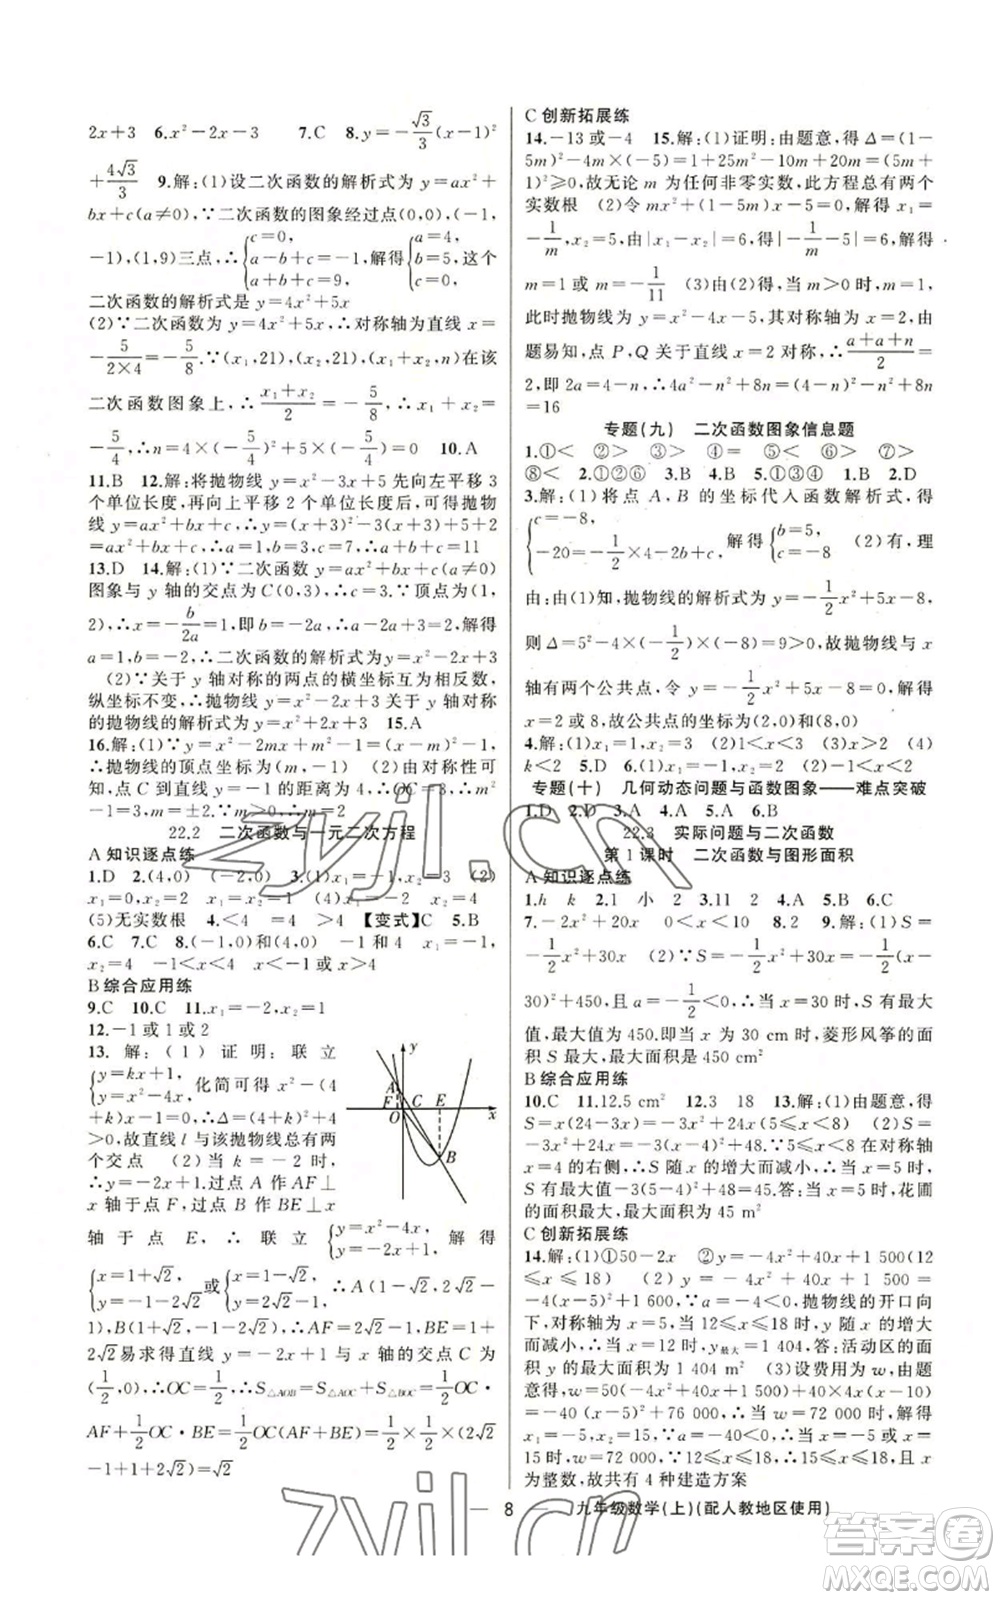 2x+3　6.x²-2x-3　7.C　8.y=-√3/3(x-1)²
+4√3/3　9.解:(1)设二次函数的解析式为 y=ax²+
bx+c(a≠0),∵二次函数的图象经过点(0,0),(-1,
-1),(1,9)三点,∴{c=0, a-b+c=-1, a+b+c=9, 解得{a=4, b=5, c=0, 这个
二次函数的解析式是 y=4x²+5x
(2)∵二次函数为 y=4x²+5x,∴对称轴为直线 x=
-5/(2×4)=-5/8,∵(x₁,21),(x₂,21),(x₁+x₂,n)在该
二次函数图象上,∴(x₁+x₂)/2=-5/8,∴x₁+x₂=
-5/4,∴n=4×(-5/4)²+5×(-5/4)=0　10.A
11.B　12.解:将抛物线 y=x²-3x+5 先向左平移 3
个单位长度,再向上平移 2 个单位长度后,可得抛物
线 y=ax²+bx+c,∴y=(x+3)²-3(x+3)+5+2
=x²+3x+7,∴a+b+c=1+3+7=11
13.D　14.解:(1)∵二次函数 y=ax²+bx+c(a≠0)
图象与 y 轴的交点为 C(0,3),∴c=3,∵顶点为(1,
2),∴x=-b/2a=1,即 b=-2a,∴a-2a+3=2,解得
a=1,b=-2,∴二次函数的解析式为 y=x²-2x+3
(2)∵关于 y 轴对称的两点的横坐标互为相反数,
纵坐标不变,∴抛物线 y=x²-2x+3 关于 y 轴对称
的抛物线的解析式为 y=x²+2x+3　15.A
16.解:(1)∵y=x²-2mx+m²-1=(x-m)²-1,
∴抛物线的顶点坐标为(m,-1)　(2)由(1)可
知,点 C 到直线 y=-1 的距离为 4,∴OC=3,∴m²
-1=3,∴m=±2
22.2　二次函数与一元二次方程
A 知识逐点练
1.D　2.(4,0)　(-2,0)　3.(1)x₁=-1,x₂=2　(2)
x₁=0,x₂=4　(3)x₁=1,x₂=2　(4)x₁=x₂=1
(5)无实数根　4.<4　=4　>4　【变式】C　5.B
6.C　7.C　8.(-1,0)和(4,0)　-1和4　x₁=-1,
x₂=4　-1<x<4　x<-1或x>4
B 综合应用练
9.C　10.C　11.x₁=-2,x₂=1
12.-1或1或2
13.解:(1)证明:联立
{y=kx+1, y=x²-4x, 化简可得 x²-(4
+k)x-1=0,∴Δ=(4+k)²+4
>0,故直线 l 与该抛物线总有两
个交点　(2)当 k=-2 时,
∴y=-2x+1,过点 A 作 AF⊥
x 轴于点 F,过点 B 作 BE⊥x
轴于点 E,∴联立{y=x²-4x, y=-2x+1, 解得
{x=1+√2, y=-1-2√2 或{x=1-√2, y=2√2-1, ∴A(1-√2,2√2-
1),B(1+√2,-1-2√2),∴AF=2√2-1,BE=1+
2√2易求得直线 y=-2x+1 与 x 轴的交点 C 为
(1/2,0),∴OC=1/2,∴S△AOB=S△AOC+S△BOC=1/2OC·
AF+1/2OC·BE=1/2OC(AF+BE)=1/2×1/2×(2√2
-1+1+2√2)=√2
y
A
F
O
C
E
x
B
C 创新拓展练
14.-13或-4　15.解:(1)证明:由题意,得 Δ=(1-
5m)²-4m×(-5)=1+25m²-10m+20m=(5m+
1)²≥0,故无论 m 为任何非零实数,此方程总有两个
实数根　(2)令 mx²+(1-5m)x-5=0,解得 x₁=
-1/m,x₂=5,由|x₁-x₂|=6,得|-1/m-5|=6,解得
m=1 或 m=-1/11　(3)由(2)得,当 m>0 时,m=1,
此时抛物线为 y=x²-4x-5,其对称轴为 x=2,由
题易知,点 P,Q 关于直线 x=2 对称,∴(a+a+n)/2=
2,即 2a=4-n,∴4a²-n²+8n=(4-n)²-n²+8n
=16
专题(九)　二次函数图象信息题
1.①<　②>　③>　④=　⑤>　⑥>　⑦>
⑧<　2.①②⑤　3.B　4.B　5.①③④　1.B　2.D
3.解:(1)将点 A,B 的坐标代入函数解析式,得
{c=-8, -20=-1/2×4-2b+c, 解得{b=5, c=-8　(2)有,理
由:由(1)知,抛物线的解析式为 y=-1/2x²+5x-8,
则 Δ=5²-4×(-1/2)×(-8)=9>0,故抛物线与 x
轴有两个公共点,令 y=-1/2x²+5x-8=0,解得
x=2 或 8,故公共点的坐标为(2,0)和(8,0)
4.解:(1)x₁=1,x₂=3　(2)1<x<3　(3)x>2　(4)
k<2　5.D　6.(1)x₁=-1,x₂=3　(2)-1<x<3
专题(十)　几何动态问题与函数图象——难点突破
1.D　2.D　3.A　4.A　5.A　6.B
22.3　实际问题与二次函数
第 1 课时　二次函数与图形面积
A 知识逐点练
1.h　k　2.1　小　2　3.11　2　4.A　5.B　6.C
7.-2x²+20x　0<x<10　8.2　9.解:(1)S=
-1/2x²+30x　(2)∵S=-1/2x²+30x=-1/2(x-
30)²+450,且 a=-1/2<0,∴当 x=30 时,S 有最大
值,最大值为 450.即当 x 为 30 cm 时,菱形风筝的面
积 S 最大,最大面积是 450 cm²
B 综合应用练
10.C　11.12.5 cm²　12.3　18　13.解:(1)由题意,得
S=x(24-3x)=-3x²+24x(5≤x<8)　(2)S=
-3x²+24x=-3(x-4)²+48(5≤x<8)在对称轴
x=4 的右侧,∴S 随 x 的增大而减小,∴当 x=5 时,
S最大=-3(5-4)²+48=45.答:当 x=5 时,花圃
的面积最大,最大面积为 45 m²
C 创新拓展练
14.解:(1)①50-2x　②y=-4x²+40x+1 500(12
≤x≤18)　(2)y=-4x²+40x+1 500=
-4(x-5)²+1 600,∵a=-4<0,抛物线的开口向
下,对称轴为 x=5,当 12≤x≤18 时,y 随 x 的增大
而减小,∴当 x=12 时,y最大=1 404.答:活动区的
面积最大为 1 404 m²　(3)设费用为 w,由题
意得,w=50(-4x²+40x+1 500)+40×4(x-10)x
=-40(x-5)²+76 000,∴当 w=72 000 时,解得
x₁=-5,x₂=15,∵a=-40<0,∴当 x≥
15 时,w≤72 000,∵12≤x≤18,∴15≤x≤18,且 x
为整数,故共有 4 种建造方案
8　九年级数学(上)(配人教地区使用)
zyjl.cn
zyjl.cn
答案圈
MXQE.COM